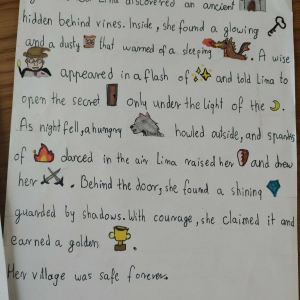 Lima discovered an ancient
hidden behind vines. Inside, she found a glowing
and a dusty that warned of a sleeping . A wise
appeared in a flash of and told Lima to
open the secret only under the light of the .
As night fell, a hungry howled outside, and sparks
of darced in the air Lima raised her and drew
her . Behind the door, she found a shining
guarded by shadows. With courage, she claimed it and
earned a golden .
Her village was safe forever.